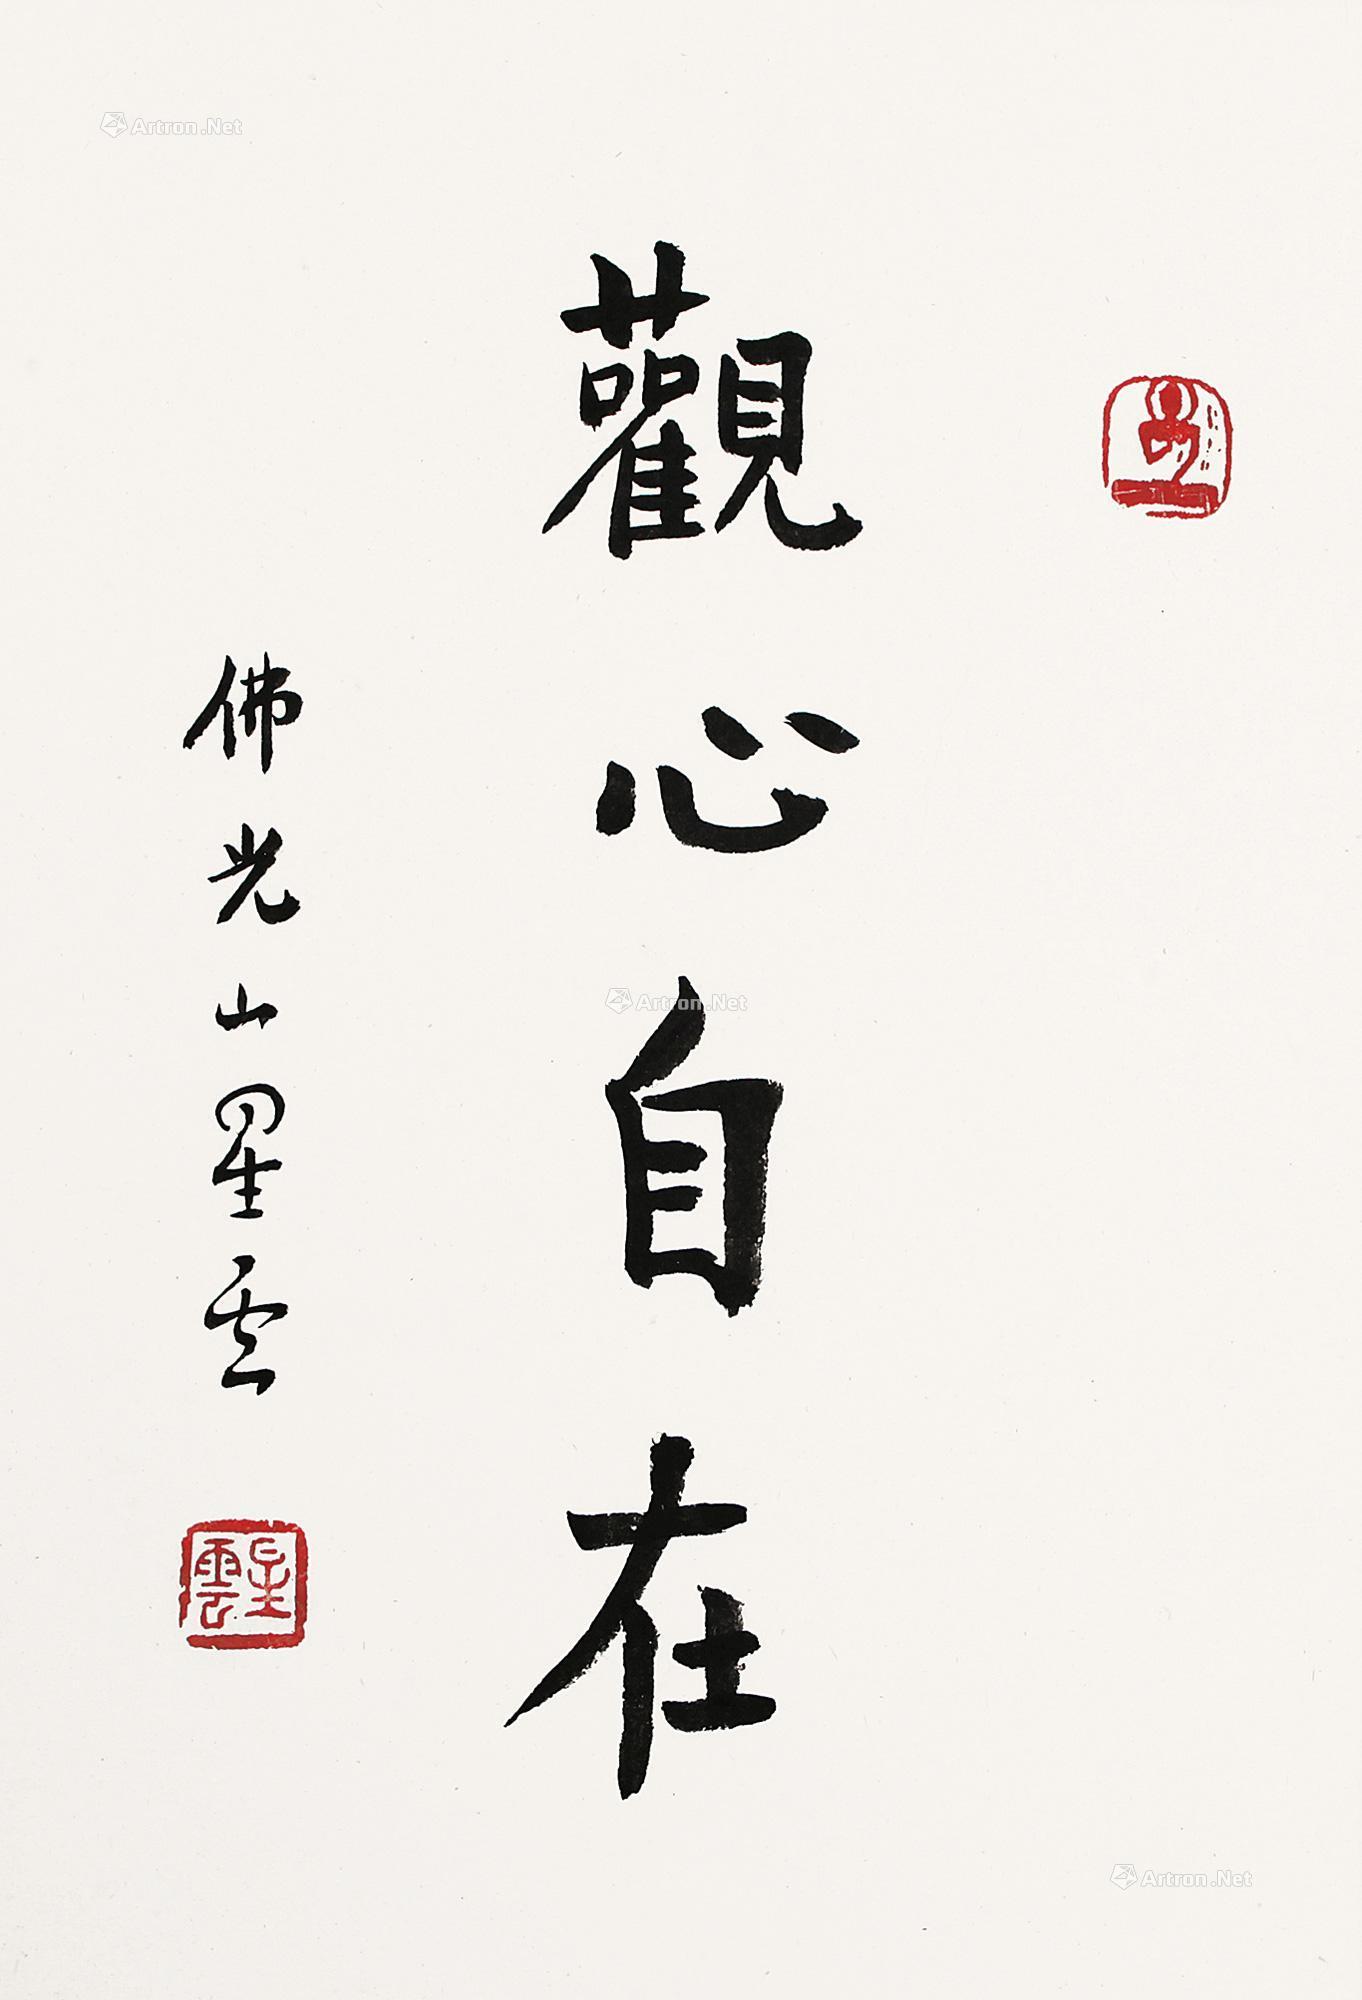 觀心自在
佛光山星雲
星雲
Artron.Net
Artron.Net
Artron.Net